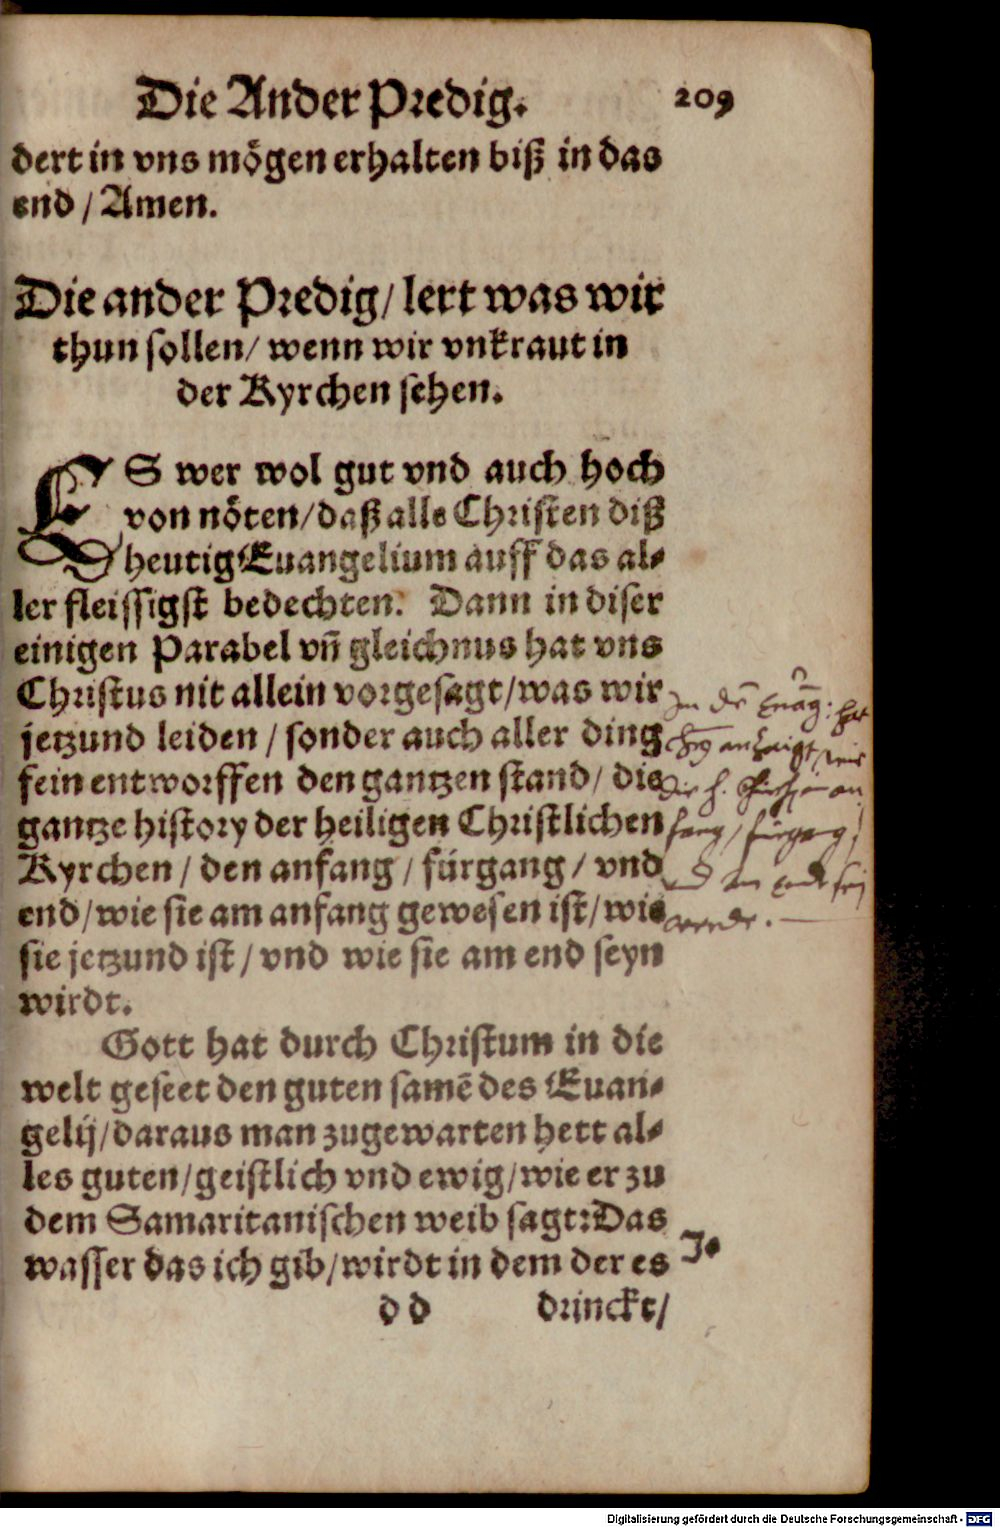 Die Ander Predig. 209
dert in vns mögen erhalten biß in das
end / Amen.
Die ander Predig / lert was wir
thun sollen / wenn wir vnkraut in
der Kyrchen sehen.
ES wer wol gut vnd auch hoch
von nöten / daß alle Christen diß
heutig Euangelium auff das al-
ler fleissigst bedechten. Dann in diser
einigen Parabel vn̄ gleichnus hat vns
Christus nit allein vorgesagt / was wir
jetzund leiden / sonder auch aller ding
fein entworffen den gantzen stand / die
gantze history der heiligen Christlichen
Kyrchen / den anfang / fürgang / vnd
end / wie sie am anfang gewesen ist / wie
sie jetzund ist / vnd wie sie am end seyn
wirdt.
Gott hat durch Christum in die
welt geseet den guten samē des Euan-
gelij / daraus man zugewarten hett al-
les guten / geistlich vnd ewig / wie er zu
dem Samaritanischen weib sagt: Das
wasser das ich gib / wirdt in dem der es
J.
d d drinckt /
In
hat
wie
die h. an
fang / fürgang /
end
werde.
Digitalisierung gefördert durch die Deutsche Forschungsgemeinschaft - DFG